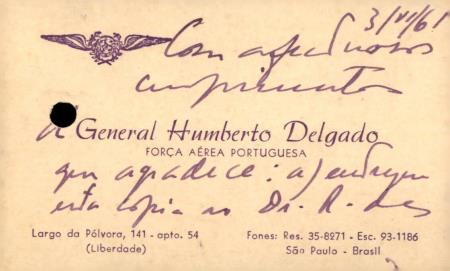 3/VI/61
Com afectuosos
cumprimentos
General Humberto Delgado
FORÇA AÉREA PORTUGUESA
que agradece: a
esta copia ao Dr. R.
Largo da Pólvora, 141 - apto. 54
(Liberdade)
Fones: Res. 35-8271 - Esc. 93-1186
São Paulo - Brasil